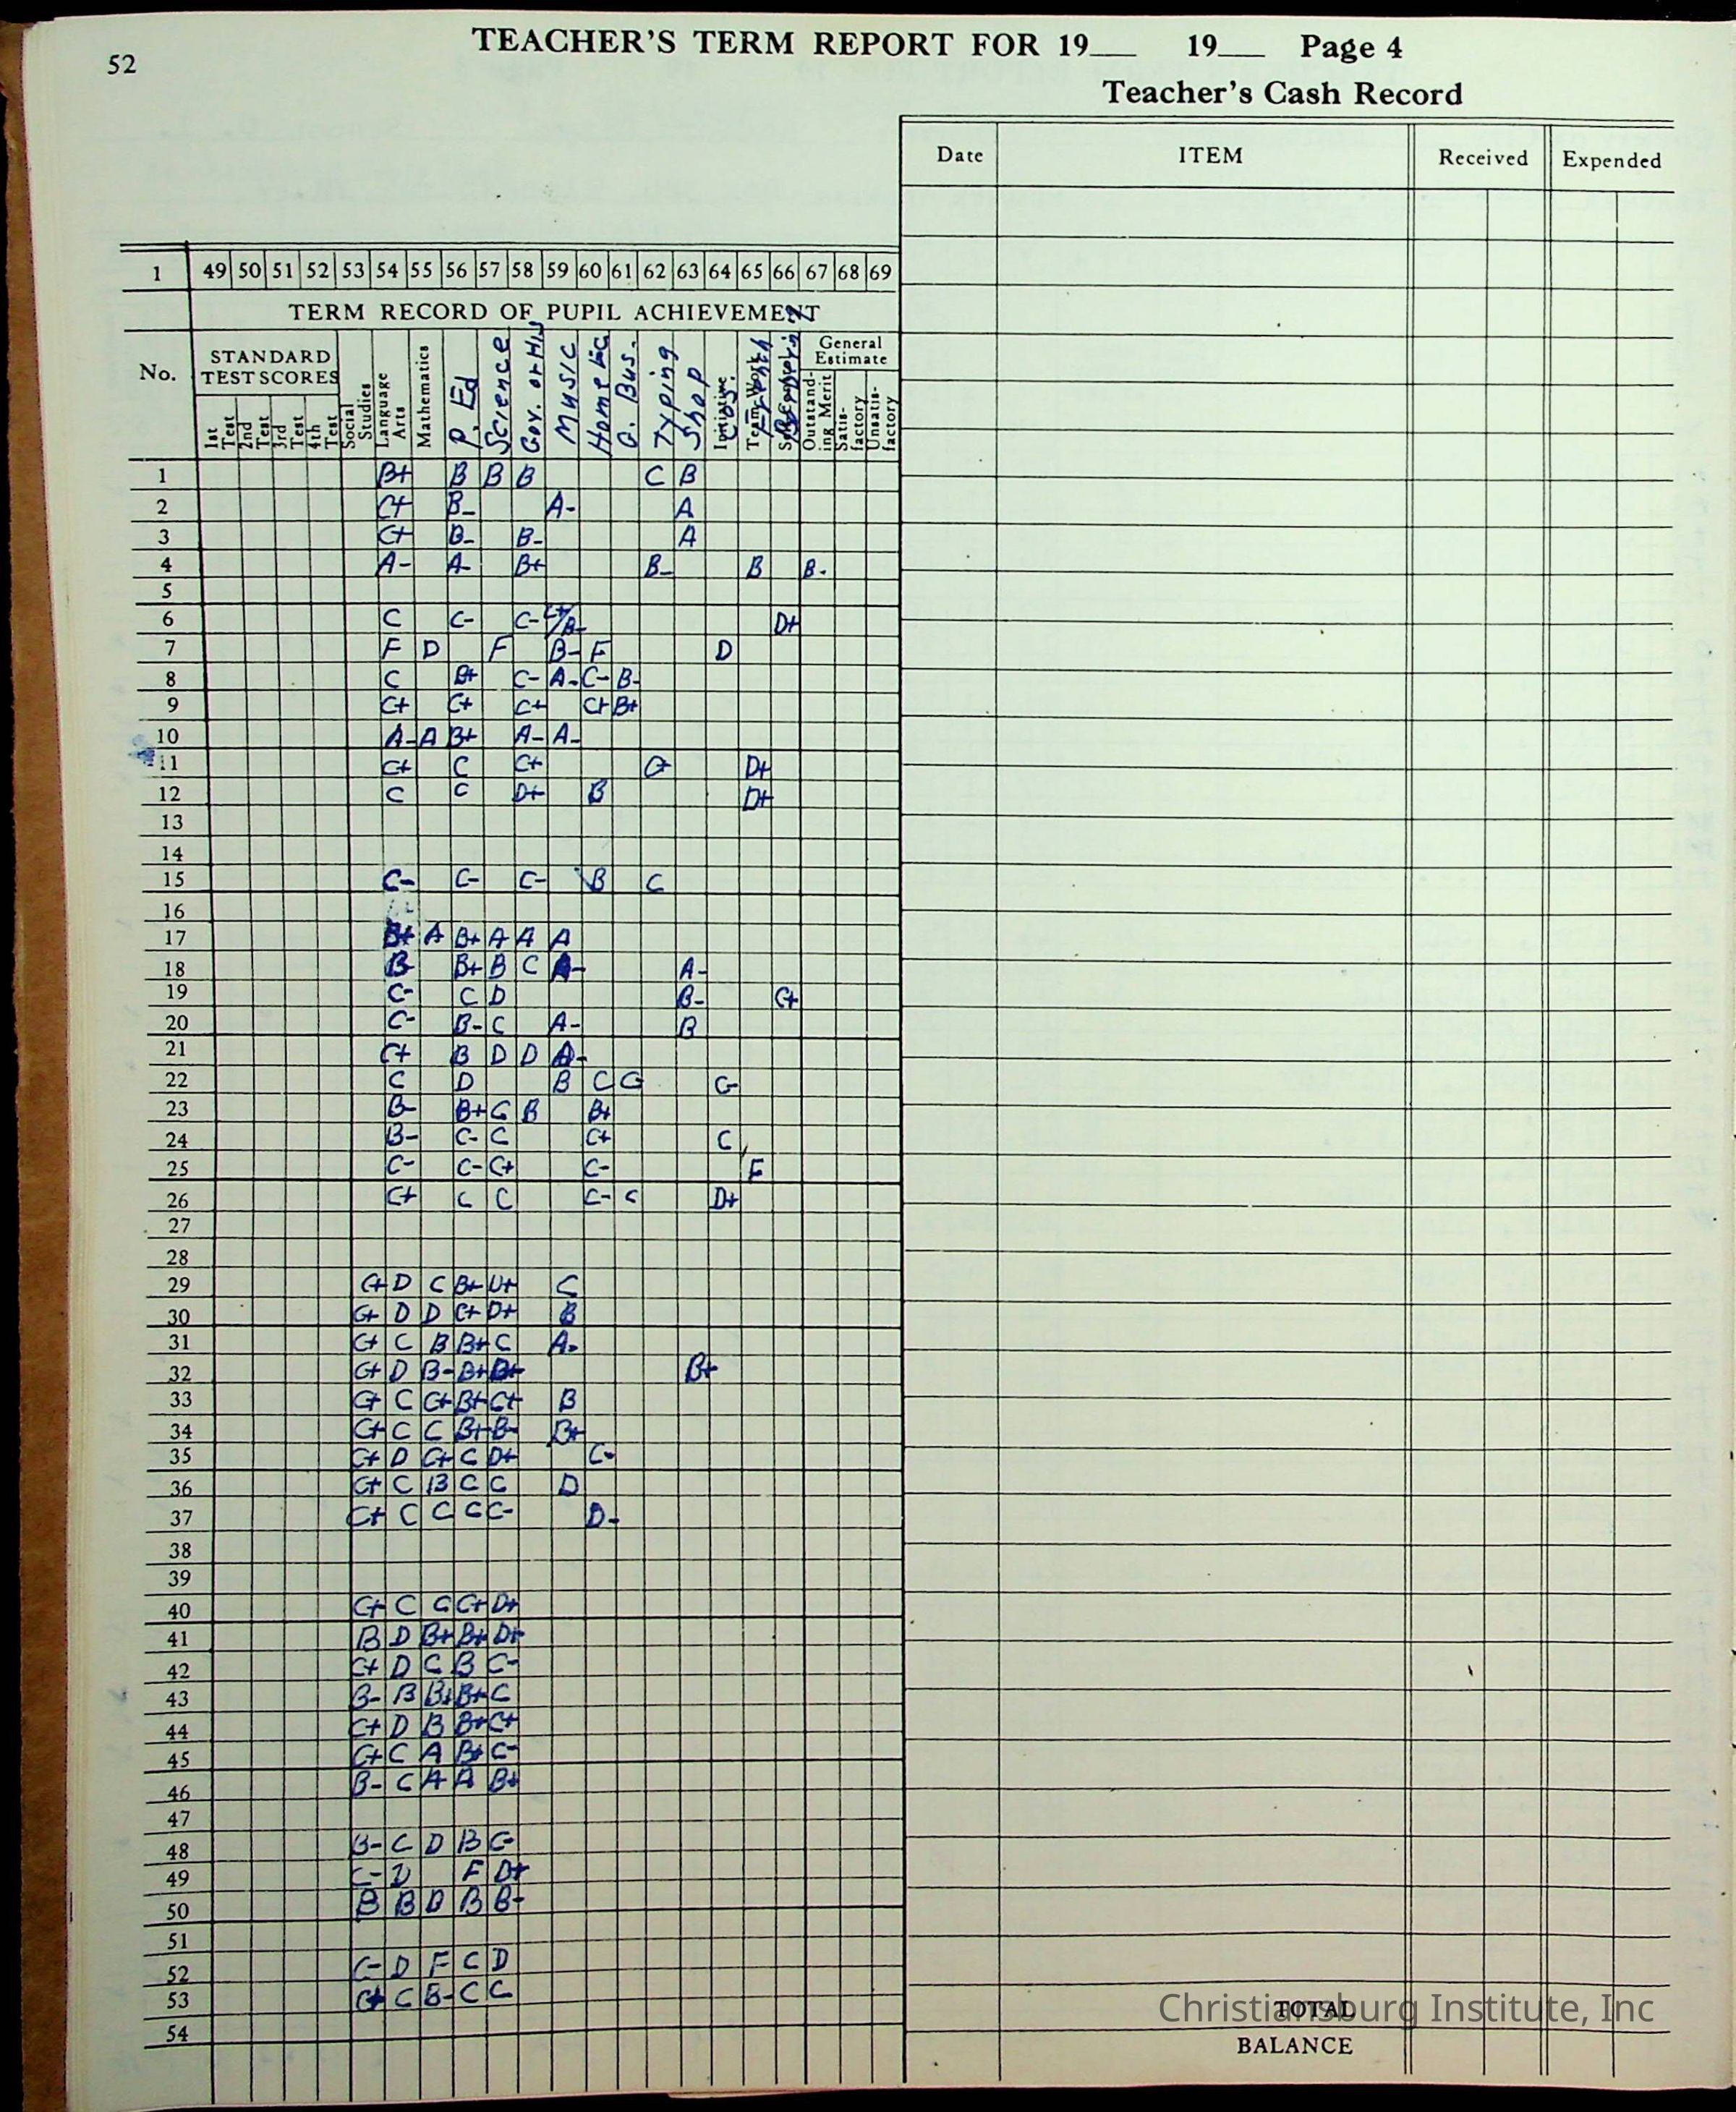 52
TEACHER'S TERM REPORT FOR 19___ 19___ Page 4
Teacher's Cash Record
Date ITEM Received Expended
1 49 50 51 52 53 54 55 56 57 58 59 60 61 62 63 64 65 66 67 68 69
TERM RECORD OF PUPIL ACHIEVEMENT
No. STANDARD TEST SCORES General Estimate
1st Test 2nd Test 3rd Test 4th Test Social Studies Language Arts Mathematics P. Ed Science Gov. or His Music Home Ec G. Bus. Typing Shop Initiative Cos. Team Work French Outstanding Merit Satisfactory Unsatisfactory
1 B+ B B B C B
2 C+ B- A- A
3 C+ B- B- A
4 A- A B+ B- B B-
5
6 C C- C- C+/B- D+
7 F D F B- F D
8 C B+ C- A- C- B-
9 C+ C+ C+ C+ B+
10 A- A B+ A- A-
11 C+ C C+ D+
12 C C D+ B D+
13
14
15 C- C- C- B C
16
17 B+ A B+ A A A
18 B B+ B C A-
19 C- C D B- C+
20 C- B- C A- B
21 C+ B D D A-
22 C D B C C- C-
23 B- B+ C B B+
24 B- C- C C+ C
25 C- C- C+ C- F
26 C+ C C C- C D+
27
28
29 C+ D C B+ D+ C
30 C+ D D C+ D+ B
31 C+ C B B+ C A-
32 C+ D B- B+ B+ B+
33 C+ C C+ B+ C+ B
34 C+ C C B+ B- B+
35 C+ D C+ C D+ C-
36 C+ C B C C D
37 C+ C C C C- D-
38
39
40 C+ C C C+ D+
41 B D B+ B+ D+
42 C+ D C B C-
43 B- B B+ B+ C
44 C+ D B B+ C+
45 C+ C A B+ C-
46 B- C A A B+
47
48 B- C D B C-
49 C- D F D+
50 B B D B B-
51
52 C- D F C D
53 C+ C B- C C
54
TOTAL
BALANCE
Christiansburg Institute, Inc